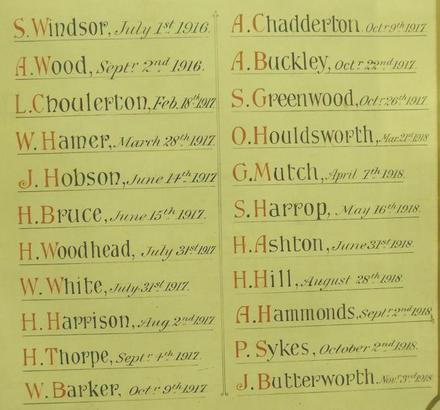 S. Windsor, July 1st 1916.
A. Wood, Septr 2nd 1916.
L. Choulerton, Feb. 18th 1917
W. Hamer, March 28th 1917.
J. Hobson, June 14th 1917.
H. Bruce, June 15th 1917.
H. Woodhead, July 31st 1917
W. White, July 31st 1917.
H. Harrison, Aug 2nd 1917
H. Thorpe, Septr 4th 1917.
W. Barker, Octr 9th 1917
A. Chadderton. Octr 9th 1917
A. Buckley, Octr 22nd 1917.
S. Greenwood, Octr 26th 1917.
O. Houldsworth, Mar. 21st 1918
G. Mutch, April 7th 1918.
S. Harrop, May 16th 1918.
H. Ashton, June 31st 1918
H. Hill, August 28th 1918
A. Hammonds, Septr 2nd 1918.
P. Sykes, October 2nd 1918.
J. Butterworth. Novr 3rd 1918